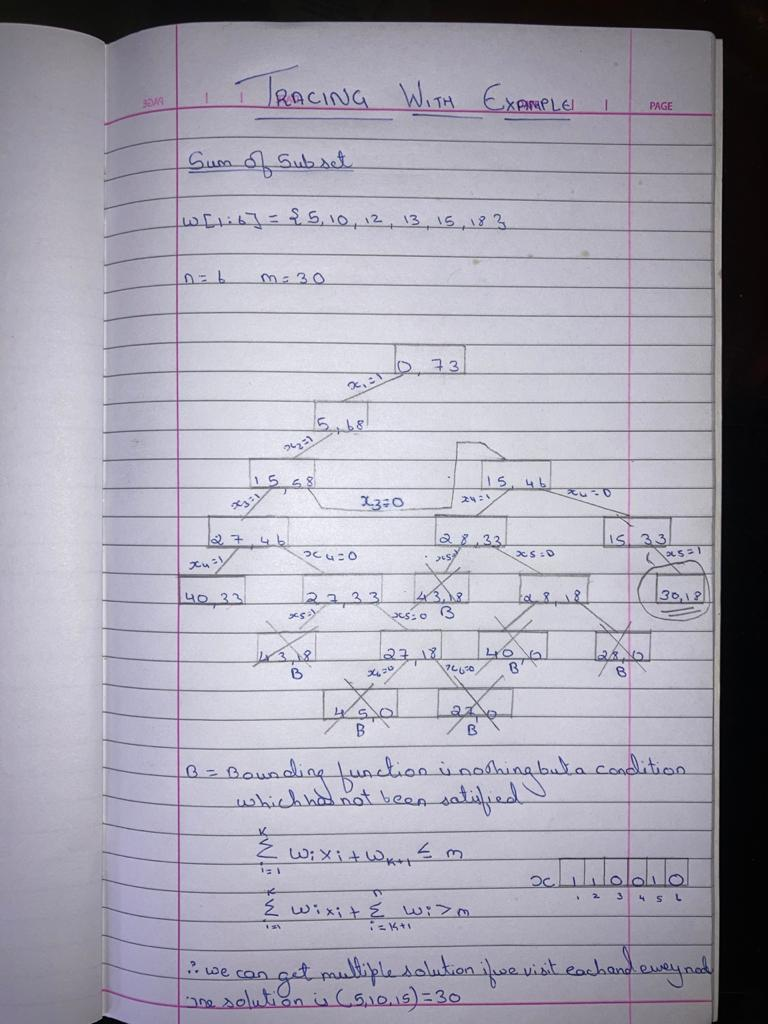 PAGE
TRACING WITH EXAMPLE
PAGE
Sum of Subset
W[1:6] = {5,10,12,13,15,18}
n=6 m=30
0,73
x1=1
5,68
x2=1
15,58 15,46
x3=1 x3=0 x4=1 x4=0
27,46 28,33 15,33
x4=1 x4=0 x5=1 x5=0 x5=1
40,33 27,33 43,18 28,18 30,18
x5=1 x5=0 B
43,18 27,18 40,0 28,0
B x6=0 x6=0 B B
45,0 27,0
B B
B = Bounding function is nothing but a condition
which has not been satisfied
K Σ i=1 wixi + wK+1 ≤ m
x 1 1 0 0 1 0
1 2 3 4 5 6
K Σ i=1 wixi + n Σ i=K+1 wi > m
∴ we can get multiple solution if we visit each and every nod
One solution is (5,10,15) = 30